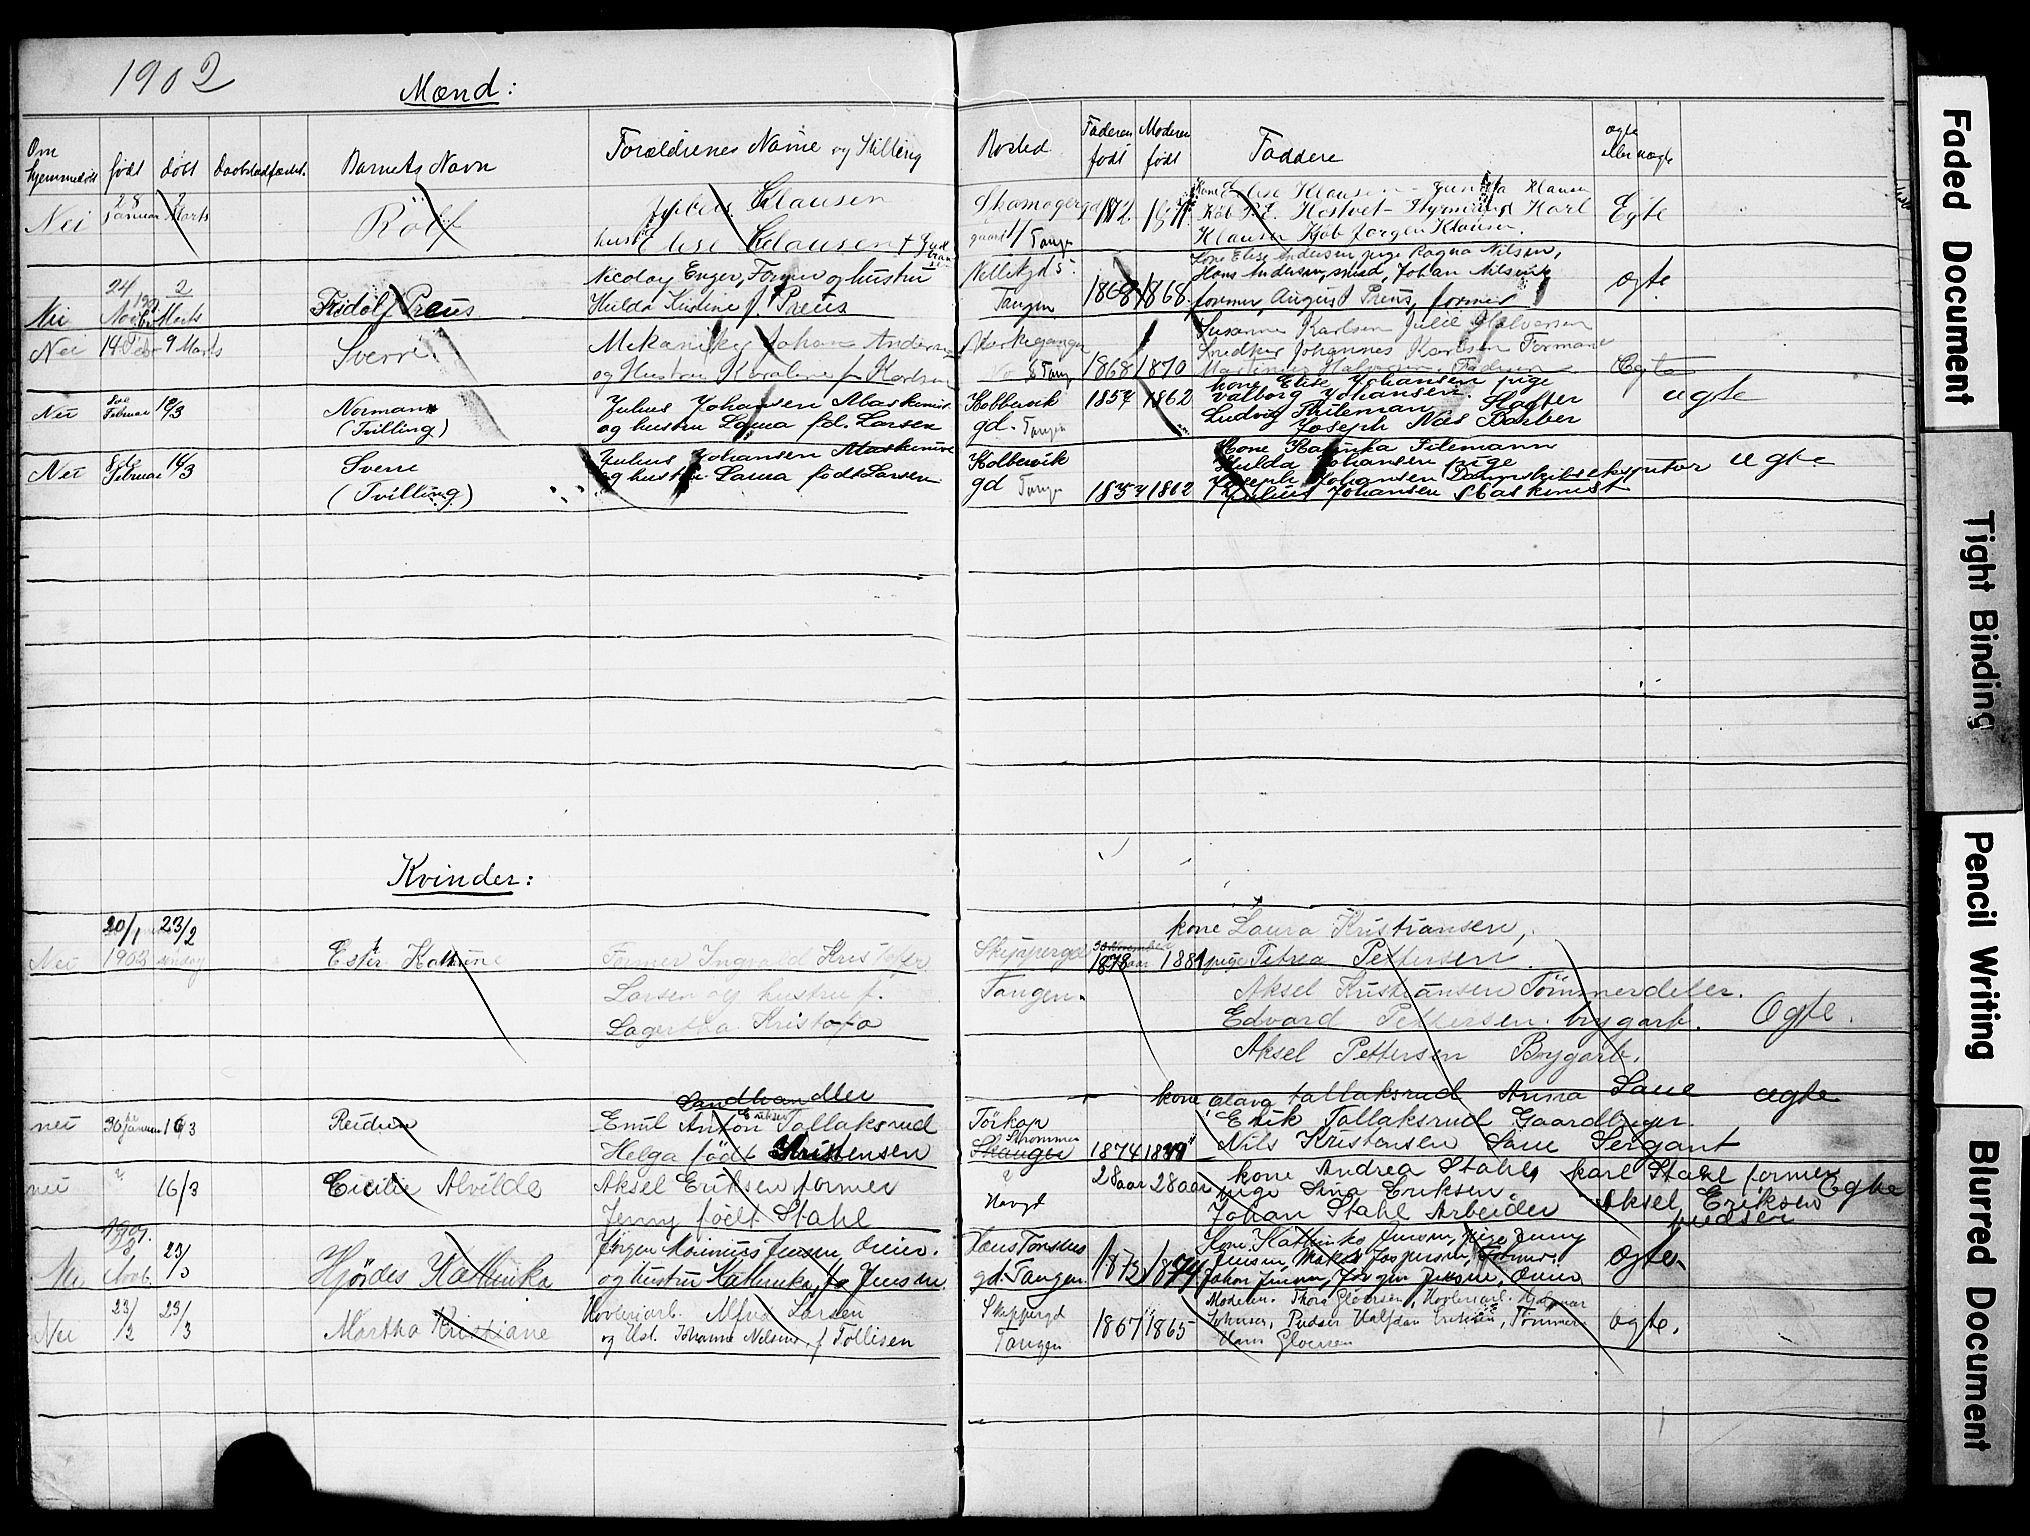 1902
Mænd:
Om hjemmedøbt født døbt Daabstadfæstet. Barnets Navn Forældrenes Navne og Stilling Bosted Faderen født Moderen født Faddere ægte eller uægte
Nei 28 januar 2 Marts Rolf Klausen
hustru Elise Klausen f
Skomagergd 1872
gaard 11 Tangen
Kone Elise Klausen - Klausen
Køb P.E. Hostvet - Styrmand Karl
Klausen Kjøb Jørgen Klausen.
Egte
Nei 24 Novb. 2 Marts Fridolf Preus
Nicolay Enger, Former og hustru
Hulda Kristine f. Preus
Nellikgd 5
Tangen 1868 1868
Kone Elise Andersen pige Ragna Nilsen,
Hans Andersen, smed, Johan Nilsen
former August Preus, former
ægte
Nei 14 Febr 9 Marts Sverre
Mekaniker Johan Andersen
og Hustru f Karlsen
Tang 1868 1870
Susanne Karlsen Julie Halvorsen
Snedker Johannes Karlsen Formand
Martinius Halvorsen. Faderen
Egte
Nei Februar 16/3 Norman
(Tvilling)
Julius Johansen Maskinist
og hustru Laura fd. Larsen
Kobbervik
gd. Tangen
1857 1862
kone Elise Johansen pige
Valborg Johansen.
Ludvig Thileman Slagter
Joseph Næs Barber
ægte
Nei Februar 16/3 Sverre
(Tvilling)
Julius Johansen Maskinist
og hustru Laura født Larsen
Kolbervik
gd Tangen
1857 1862
Kone Katinka Tilemann
Hulda Johansen pige
Joseph Johansen Dampskibsekspeditør
Julius Johansen Maskinist
ægte
Kvinder:
20/1 23/2
Nei 1902 søndag Ester Katrine
Former Ingvald Kristofer
Larsen og hustru f.
Lagertha Kristofa
Skippergd
Tangen.
1878 1881
kone Laura Kristiansen,
pige Petrea Pettersen
Aksel Kristiansen Tømmerdeler.
Edvard Pettersen. brygarb.
Aksel Pettersen Brygarb.
Egte.
nei 30 januar 16/3 Reidun
Landhandler
Emil Anton Eriksen Tallaksrud
Helga født Kristensen
Törkop
Skauger Strømmen
1874
kone Olava tallaksrud Anna Saue
Erik Tallaksrud Gaardbruger.
Nils Kristensen Saue Sergant
ægte
nei 16/3 Cicilie Alvilde
Aksel Eriksen former
Jenny født Stahl
Havgt
28 aar 28 aar
kone Andrea Stahl, karl Stahl former
pige Lina Eriksen. Aksel Eriksen
Johan Stahl Arbeider pudser
Egte
1901
Nei 23 Novb. 23/3 Hjørdes Kathinka
Jørgen Marinius JensenØrer.
og hustru Kathinka, fø Jensen
Hans Tordsens
gd. Tangen
1873 1874
Kone Kathinka Jensen, pige Jenny
Jensen, Jespersen, Former.
Johan Jensen, Jørgen Jensen,
ægte.
Nei 23/2 23/3 Martha Kristiane
Høvleriarb. Alfred Larsen
og Hst. Johanne Nelsine f Tollisen
Skippergd
Tangen
1867 1865
Moderen. Thora Gloersen, Høvleriarb. Hjalmar
Johnsen, Pudser Halfdan Eriksen, Tømmer
Hans Gloersen
ægte.
Faded Document
Tight Binding
Pencil Writing
Blurred Document